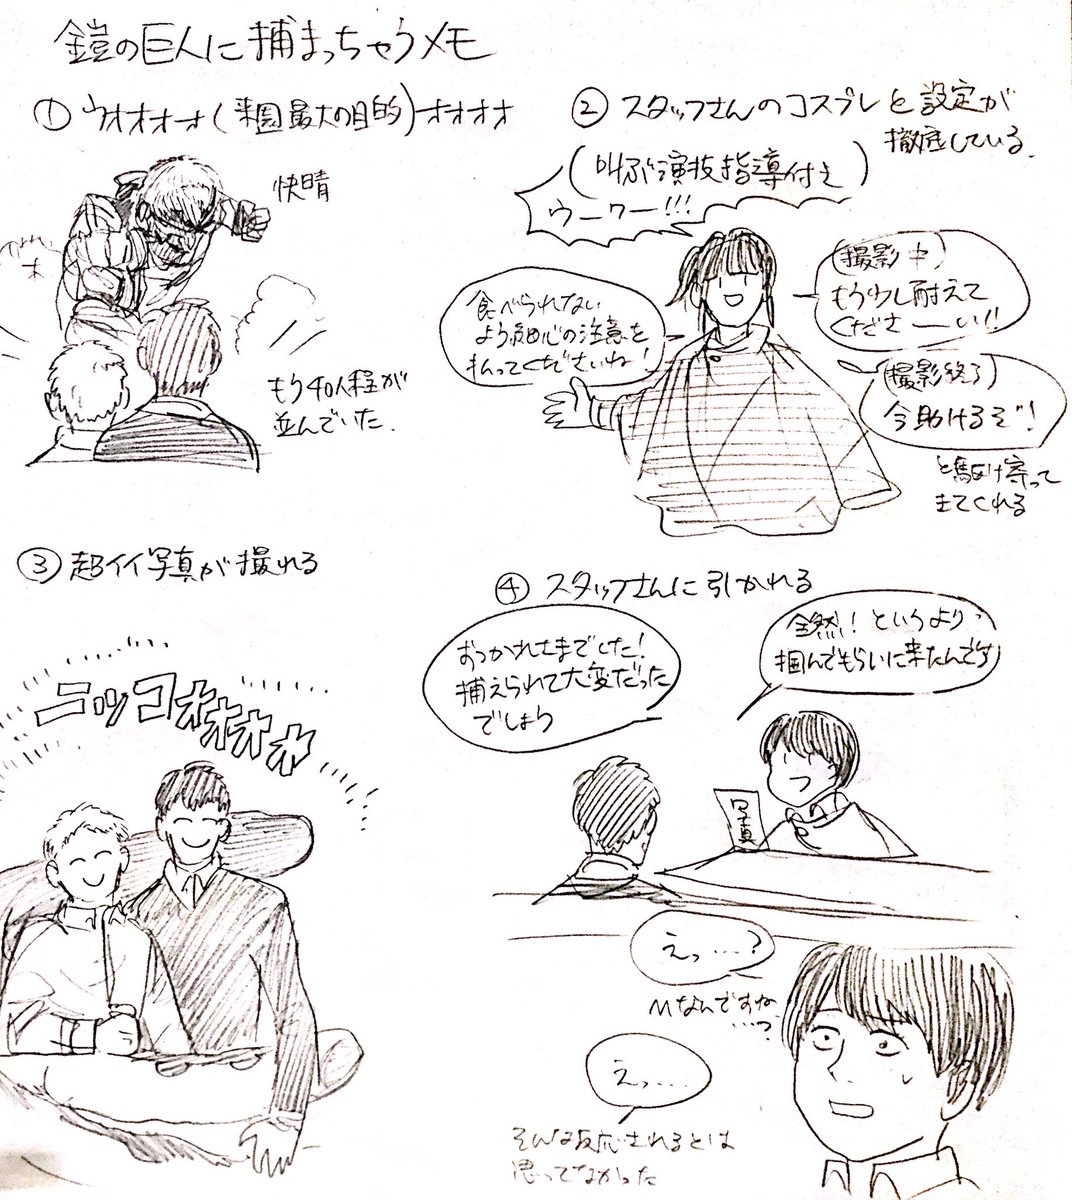 鎧の巨人に捕まっちゃうメモ
① ウオオオーオ(来園最大の目的)オオオオ
快晴
木
もう40人程が
並んでいた.
② スタッフさんのコスプレと設定が
徹底している.
(叫ぶ演技指導付き)
ウーワー!!!
食べられない
よう細心の注意を
払ってくださいね!
(撮影中)
もう少し耐えて
くださーい!!
(撮影終了)
今助けるぞ!
と駆け寄って
きてくれる
③ 超イイ写真が撮れる
ニッコオオオオ
④ スタッフさんに引かれる
おつかれさまでした!
捕えられて大変だった
でしょう
全然!というより
掴んでもらいに来たんです
写真
えっ……?
Mなんですね
…っ
えっ……
そんな反応されるとは
思ってなかった